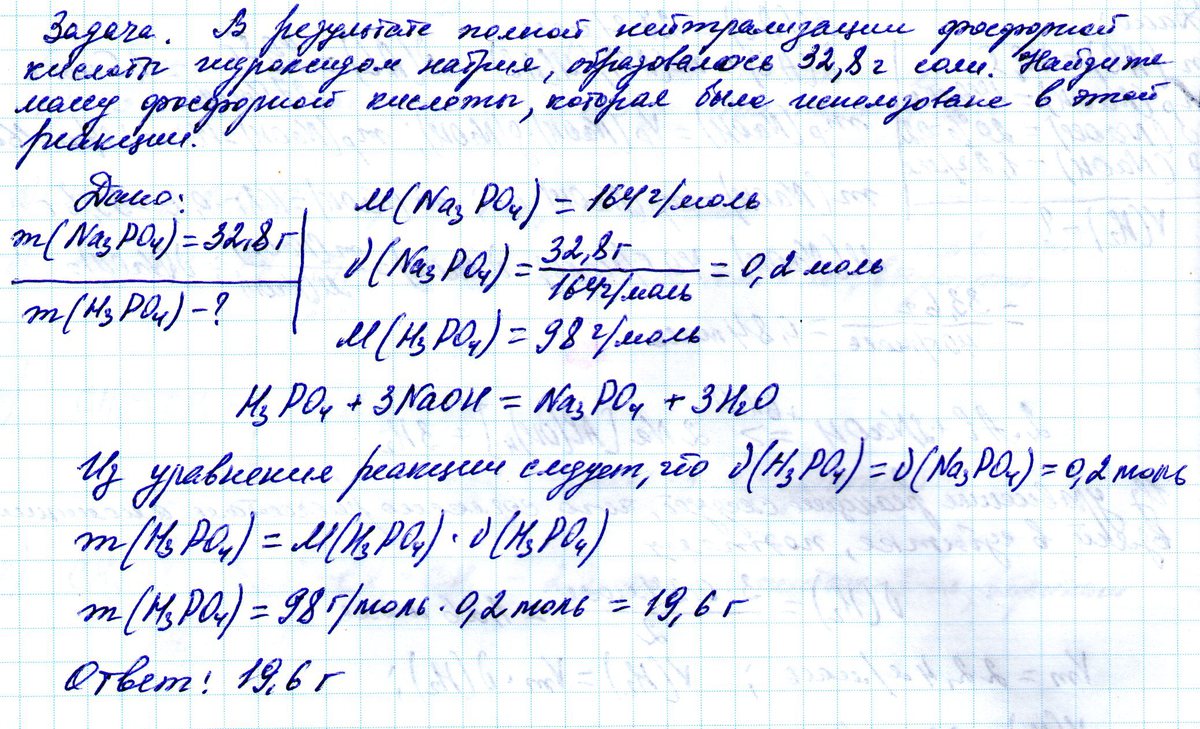 Задача. В результате полной нейтрализации фосфорной
кислоты гидроксидом натрия, образовалось 32,8 г соли. Найдите
массу фосфорной кислоты, которая была использована в этой
реакции.
Дано:
m(Na₃PO₄) = 32,8 г
m(H₃PO₄) - ?
M(Na₃PO₄) = 164 г/моль
ν(Na₃PO₄) = 32,8 г / 164 г/моль = 0,2 моль
M(H₃PO₄) = 98 г/моль
H₃PO₄ + 3NaOH = Na₃PO₄ + 3H₂O
Из уравнения реакции следует, что ν(H₃PO₄) = ν(Na₃PO₄) = 0,2 моль
m(H₃PO₄) = M(H₃PO₄) · ν(H₃PO₄)
m(H₃PO₄) = 98 г/моль · 0,2 моль = 19,6 г
Ответ: 19,6 г